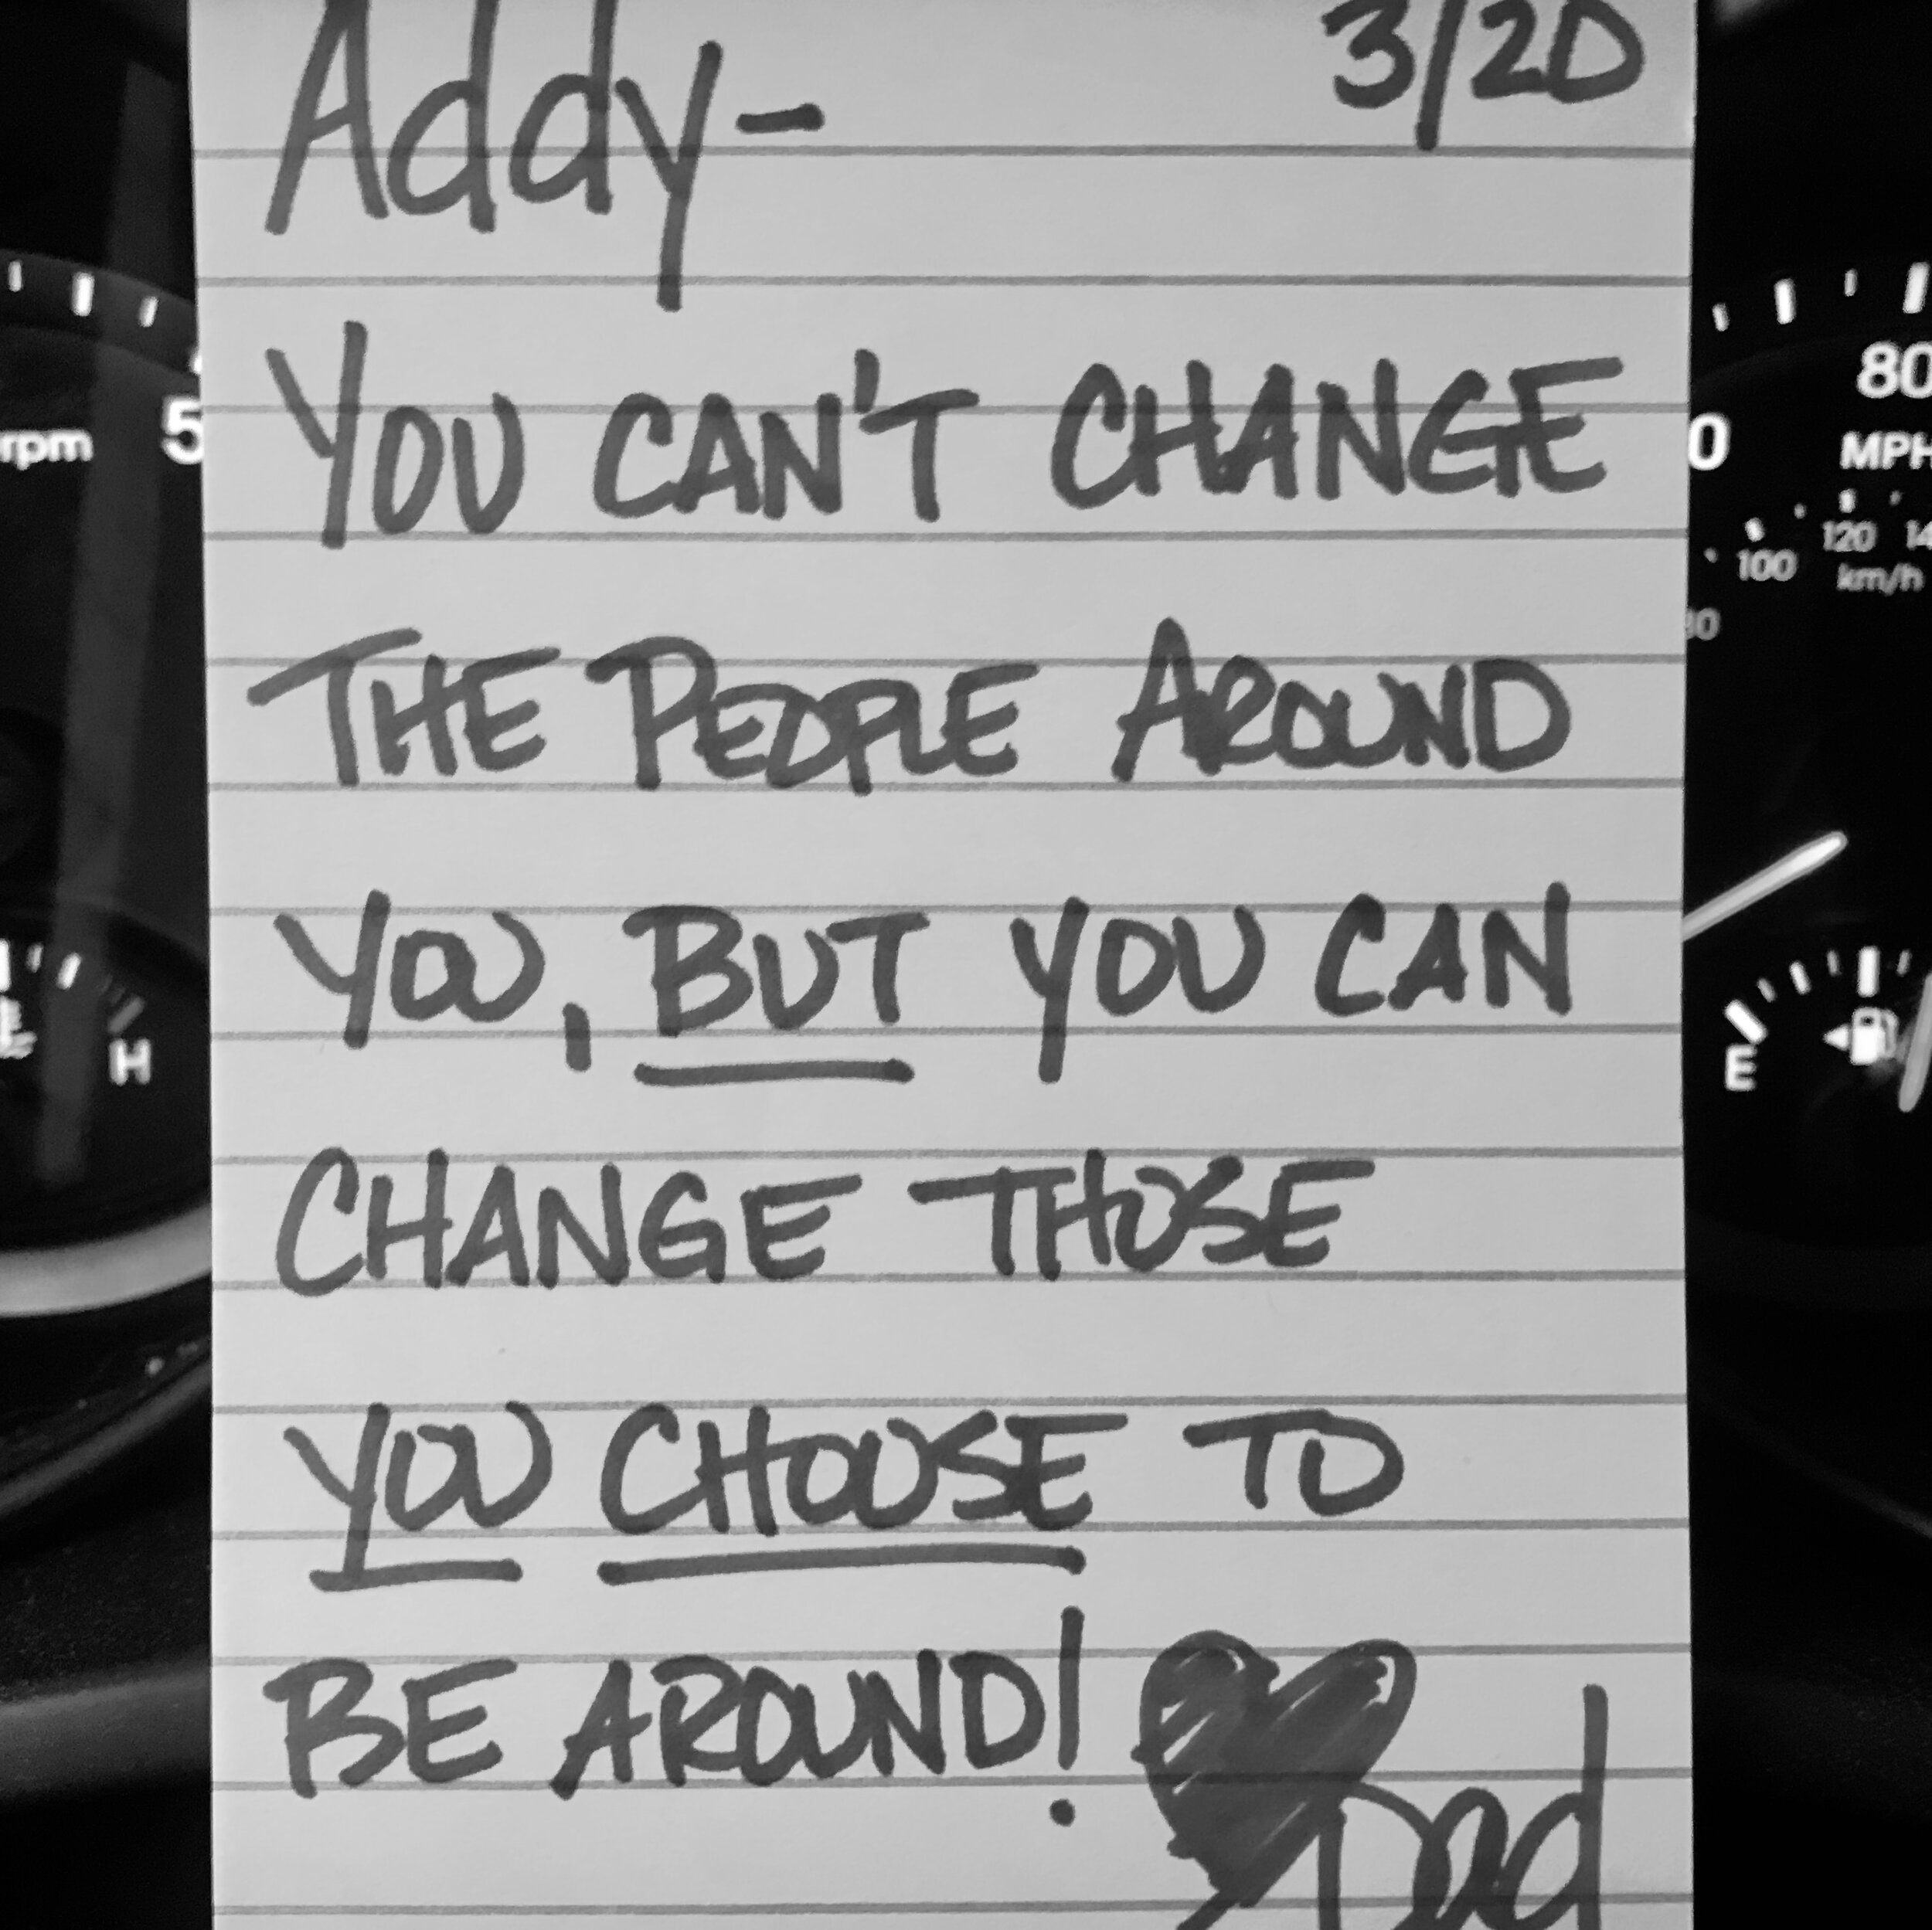 Addy- 3/20
YOU CAN'T CHANGE
THE PEOPLE AROUND
YOU, BUT YOU CAN
CHANGE THOSE
YOU CHOOSE TO
BE AROUND!
Dad
rpm 5
H
80
0 MPH
120
100 km/h
E